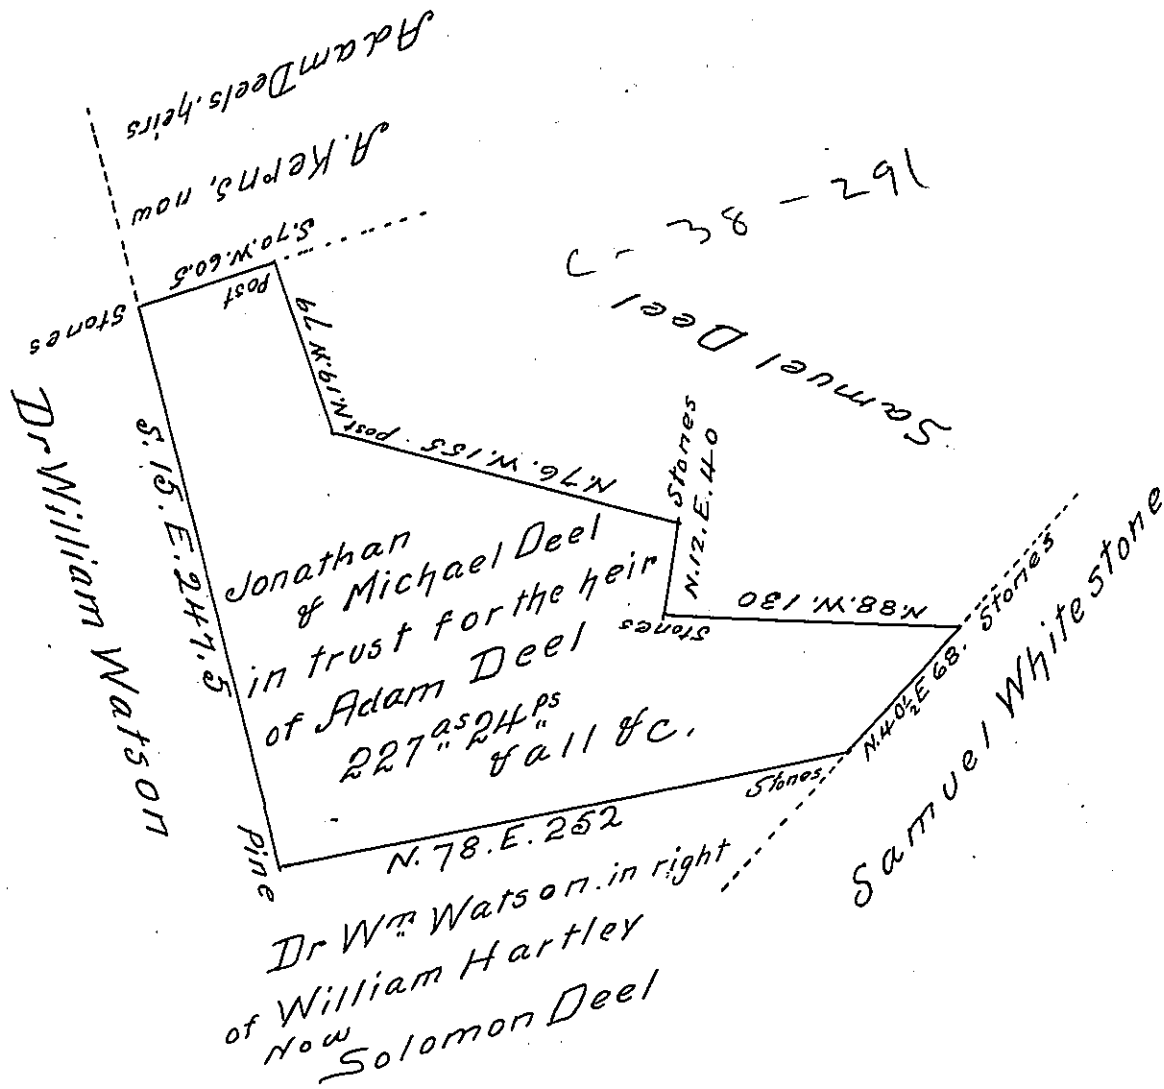 Adam Deels. heirs
A. Kerns, now
C - 38 - 291
Samuel Deel
S. 70. W. 60.5
Post
Stones
N. 19. W 79
post.
N. 76. W. 155
Stones
N. 12. E. 40
Stones
N. 88. W. 130
Stones
N. 40½ E 68.
Samuel White stone
Dr William Watson
S. 15. E. 247.5
Jonathan
& Michael Deel
in trust for the heir
of Adam Deel
227 as " 24 ps "
& all &c.
Stones
Pine
N. 78. E. 252
Dr Wm Watson. in right
of William Hartley
Now
Solomon Deel